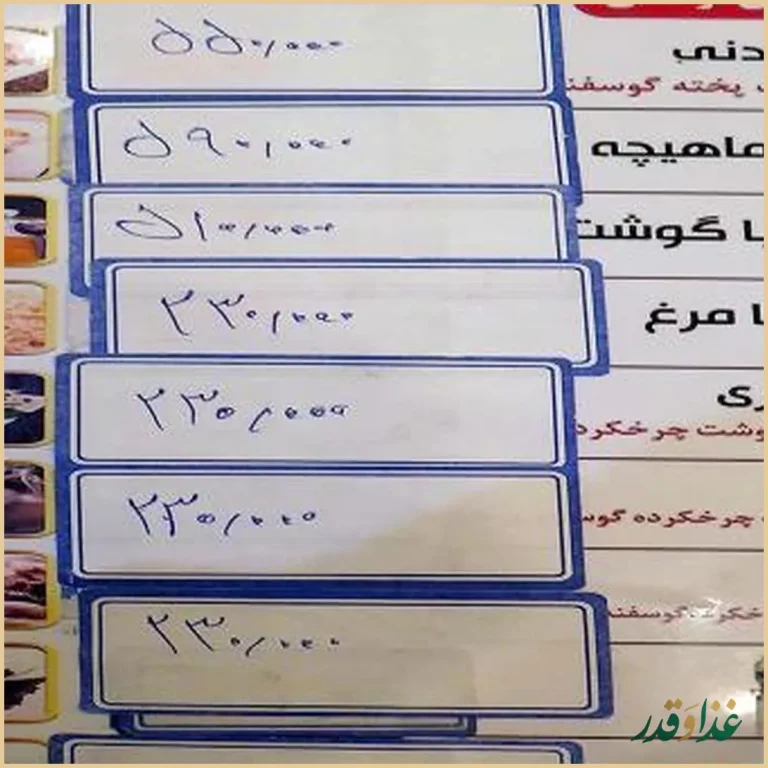 دنی
پخته گوسفند
۵۵۰/۰۰۰
ماهیچه
۵۹۰/۰۰۰
با گوشت
۵۱۰/۰۰۰
با مرغ
۲۳۰/۰۰۰
ری
وشت چرخکرد
۲۳۰/۰۰۰
چرخکرده گوس
۲۳۰/۰۰۰
خکرده گوسفند
۲۳۰/۰۰۰
غذا و قدر